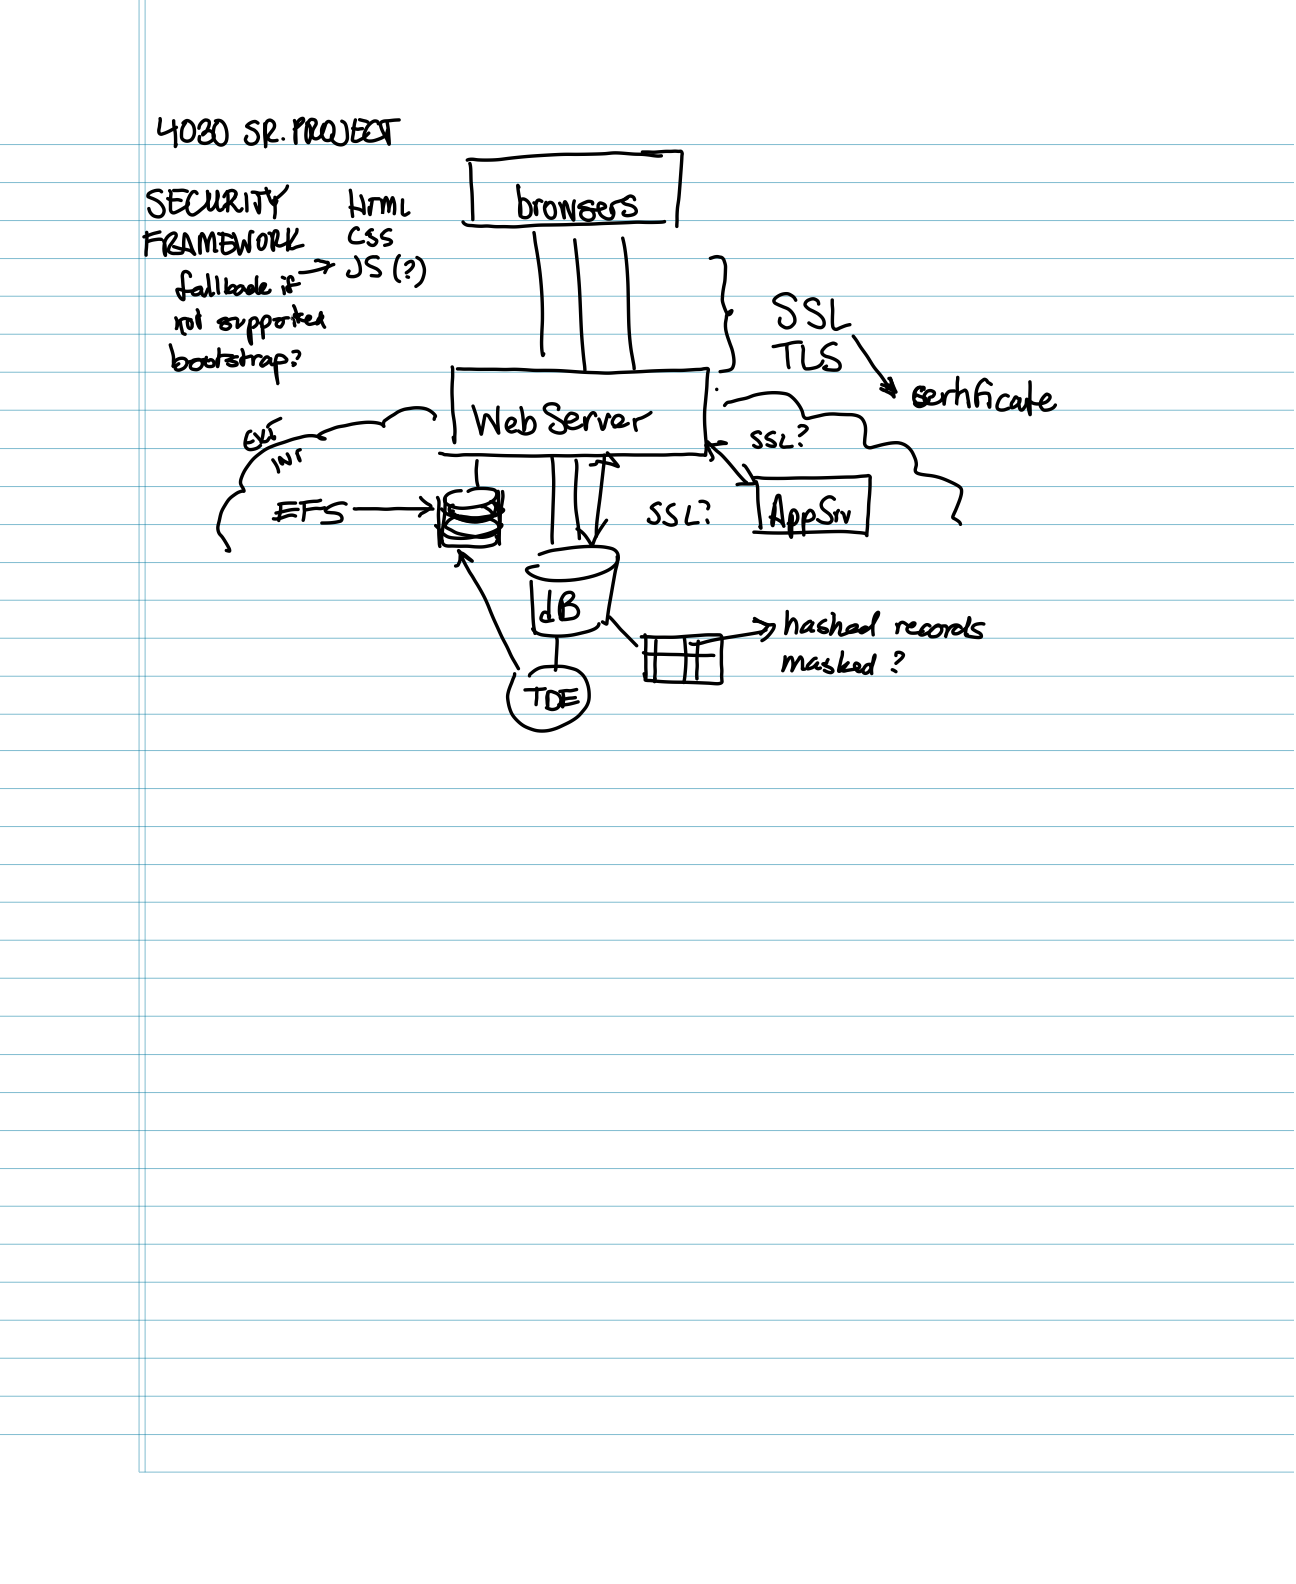 4030 SR. PROJECT
SECURITY
FRAMEWORK
HTML
CSS
JS (?)
fallbade if
not supported
bootstrap?
browsers
SSL
TLS
certificate
Web Server
EXT
INT
SSL?
EFS
SSL?
AppSrv
dB
hashed records
masked ?
TDE